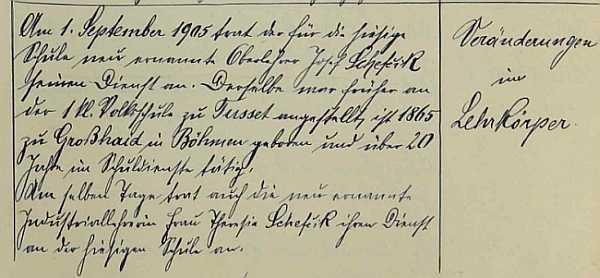 Am 1. September 1905 trat der für die hiesige
Schule neu ernannte Oberlehrer Josef Schefcik
seinen Dienst an. Derselbe war früher an
der 1 kl. Volksschule zu Tusset angestellt, ist 1865
zu Großhaid in Böhmen geboren und über 20
Jahre im Schuldienste tätig.
Am selben Tage trat auch die neu ernannte
Industriallehrerin Frau Theresia Schefcik ihren Dienst
an der hiesigen Schule an.
Veränderungen
im
Lehrkörper.